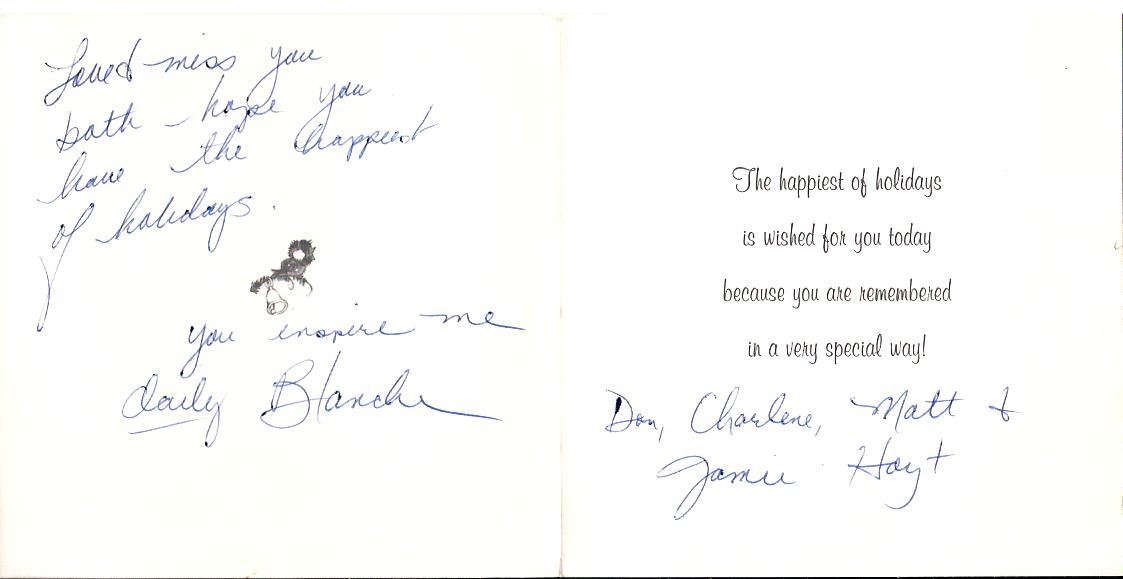 Love & miss you
both - hope you
have the happiest
of holidays.
you inspire me
daily Blanche
The happiest of holidays
is wished for you today
because you are remembered
in a very special way!
Don, Charlene, Matt &
Jamie Hoyt